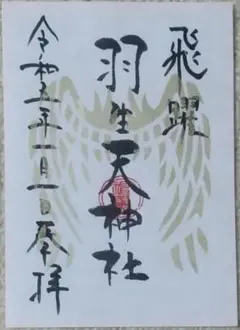 飛躍
羽生天神社
令和五年一月一日奉拝